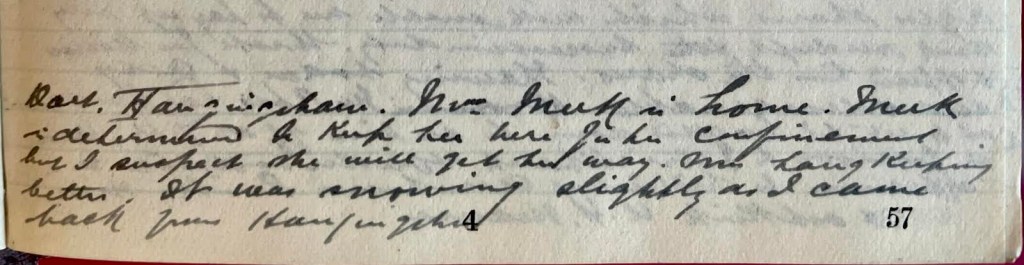 Hangingshaw. Mrs Meek is home. Meek
is determined to keep her here for her confinement
but I suspect she will get her way. Mrs Lang keeping
better. It was snowing slightly as I came
back from Hangingshaw
4 57